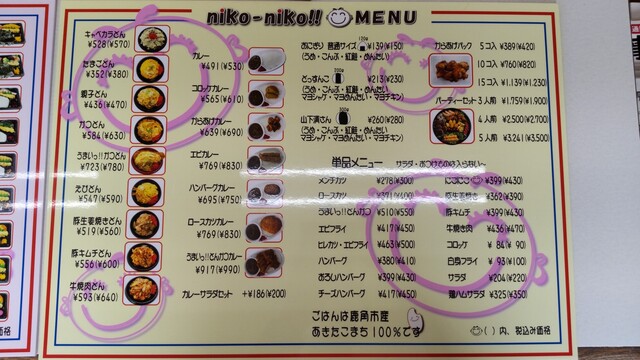 niko-niko!! MENU
キャベカラどん
¥528(¥570)
たまごどん
¥352(¥380)
親子どん
¥436(¥470)
カツどん
¥584(¥630)
うまいっ!!カツどん
¥723(¥780)
えびどん
¥547(¥590)
豚生姜焼きどん
¥519(¥560)
豚キムチどん
¥556(¥600)
牛焼肉どん
¥593(¥640)
カレー
¥491(¥530)
コロッケカレー
¥565(¥610)
からあげカレー
¥639(¥690)
エビカレー
¥769(¥830)
ハンバーグカレー
¥695(¥750)
ロースカツカレー
¥769(¥830)
うまいっ!!とんかつカレー
¥917(¥990)
カレーサラダセット +¥186(¥200)
おにぎり 普通サイズ 120g ¥139(¥150)
(うめ・こんぶ・紅鮭・めんたい)
どっすんこ 200g ¥213(¥230)
(うめ・こんぶ・紅鮭・めんたい
マヨシャケ・マヨめんたい・マヨチキン)
山下清さん ¥260(¥280)
(うめ・こんぶ・紅鮭・めんたい
マヨシャケ・マヨめんたい・マヨチキン)
からあげパック 5コ入 ¥389(¥420)
10コ入 ¥760(¥820)
15コ入 ¥1,139(¥1,230)
パーティーセット 3人前 ¥1,759(¥1,900)
4人前 ¥2,500(¥2,700)
5人前 ¥3,241(¥3,500)
単品メニュー サラダ・おつけものは入らない〜
メンチカツ ¥278(¥300)
ロースカツ ¥371(¥400)
うまいっ!!とんかつ ¥510(¥550)
エビフライ ¥417(¥450)
ヒレカツ・エビフライ ¥463(¥500)
ハンバーグ ¥380(¥410)
おろしハンバーグ ¥399(¥430)
チーズハンバーグ ¥417(¥450)
¥399(¥430)
豚生姜焼き ¥362(¥390)
豚キムチ ¥399(¥430)
牛焼き肉 ¥436(¥470)
コロッケ ¥84(¥90)
白身フライ ¥93(¥100)
サラダ ¥204(¥220)
鶏ハムサラダ ¥325(¥350)
ごはんは鹿角市産
あきたこまち100%です
( )内、税込み価格
価格